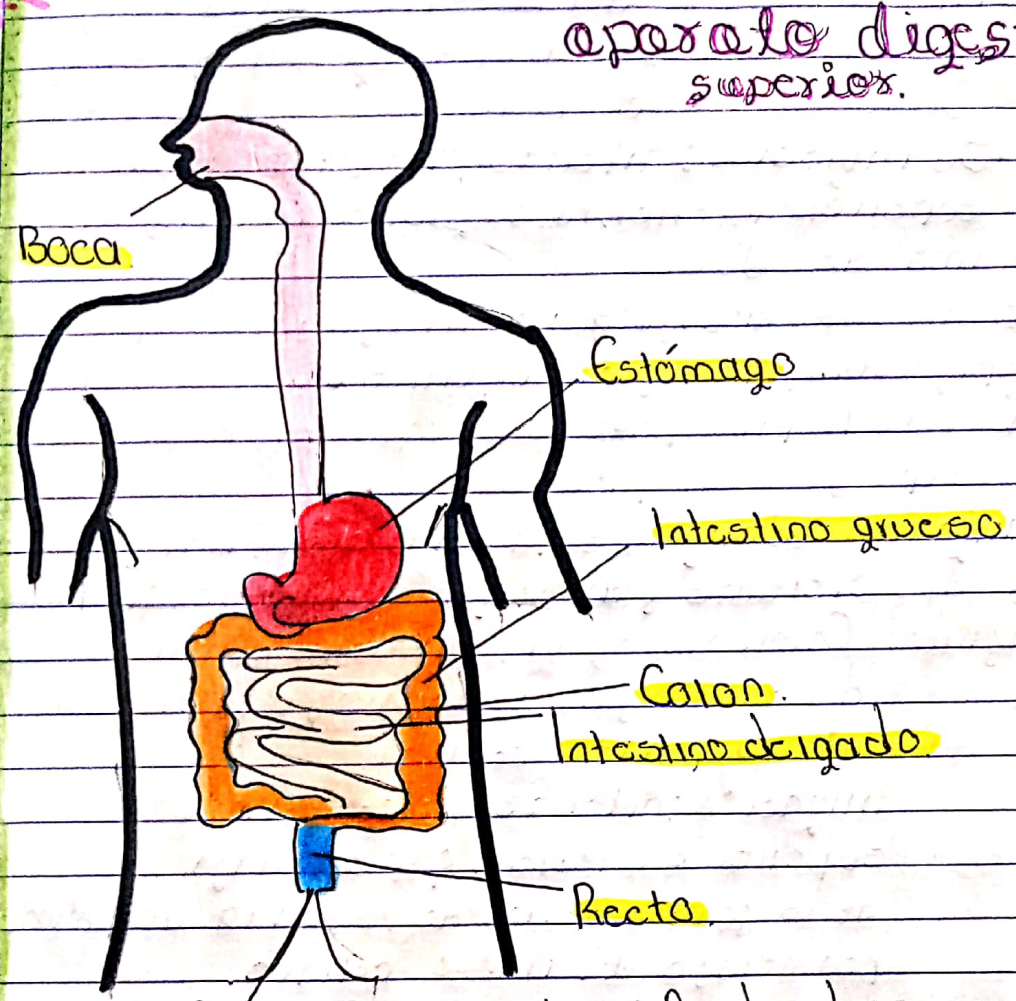 aparato diges
superior.
Boca
Estómago
Intestino grueso
Colon.
Intestino delgado.
Recto.